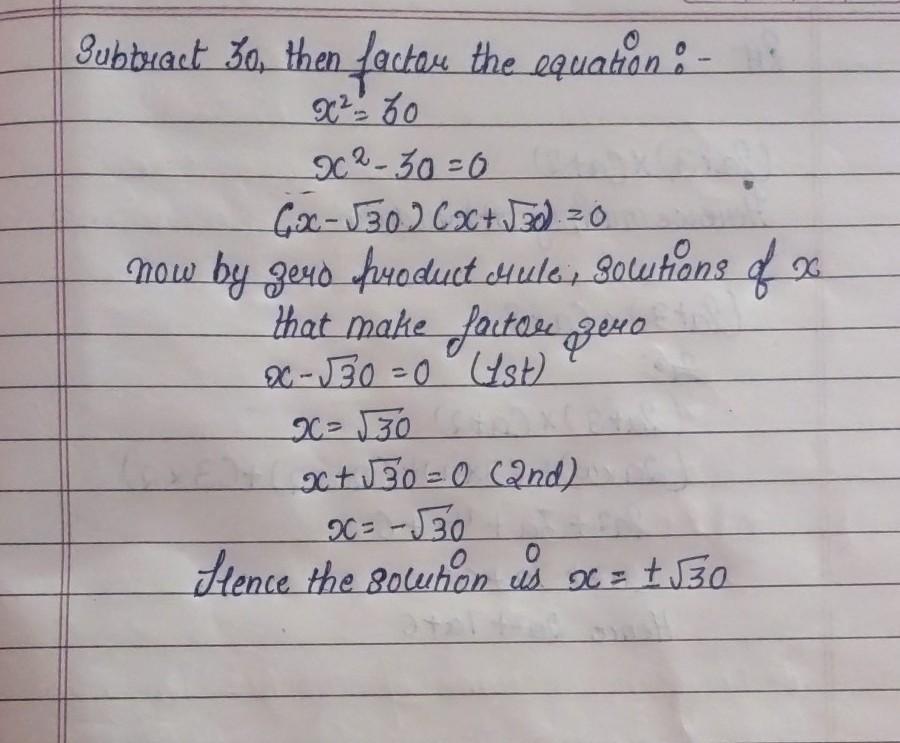 Subtract 30, then factor the equation :-
x² = 30
x² - 30 = 0
(x - √30) (x + √30) = 0
now by zero product rule, solutions of x
that make factor zero
x - √30 = 0 (1st)
x = √30
x + √30 = 0 (2nd)
x = -√30
Hence the solution is x = ± √30